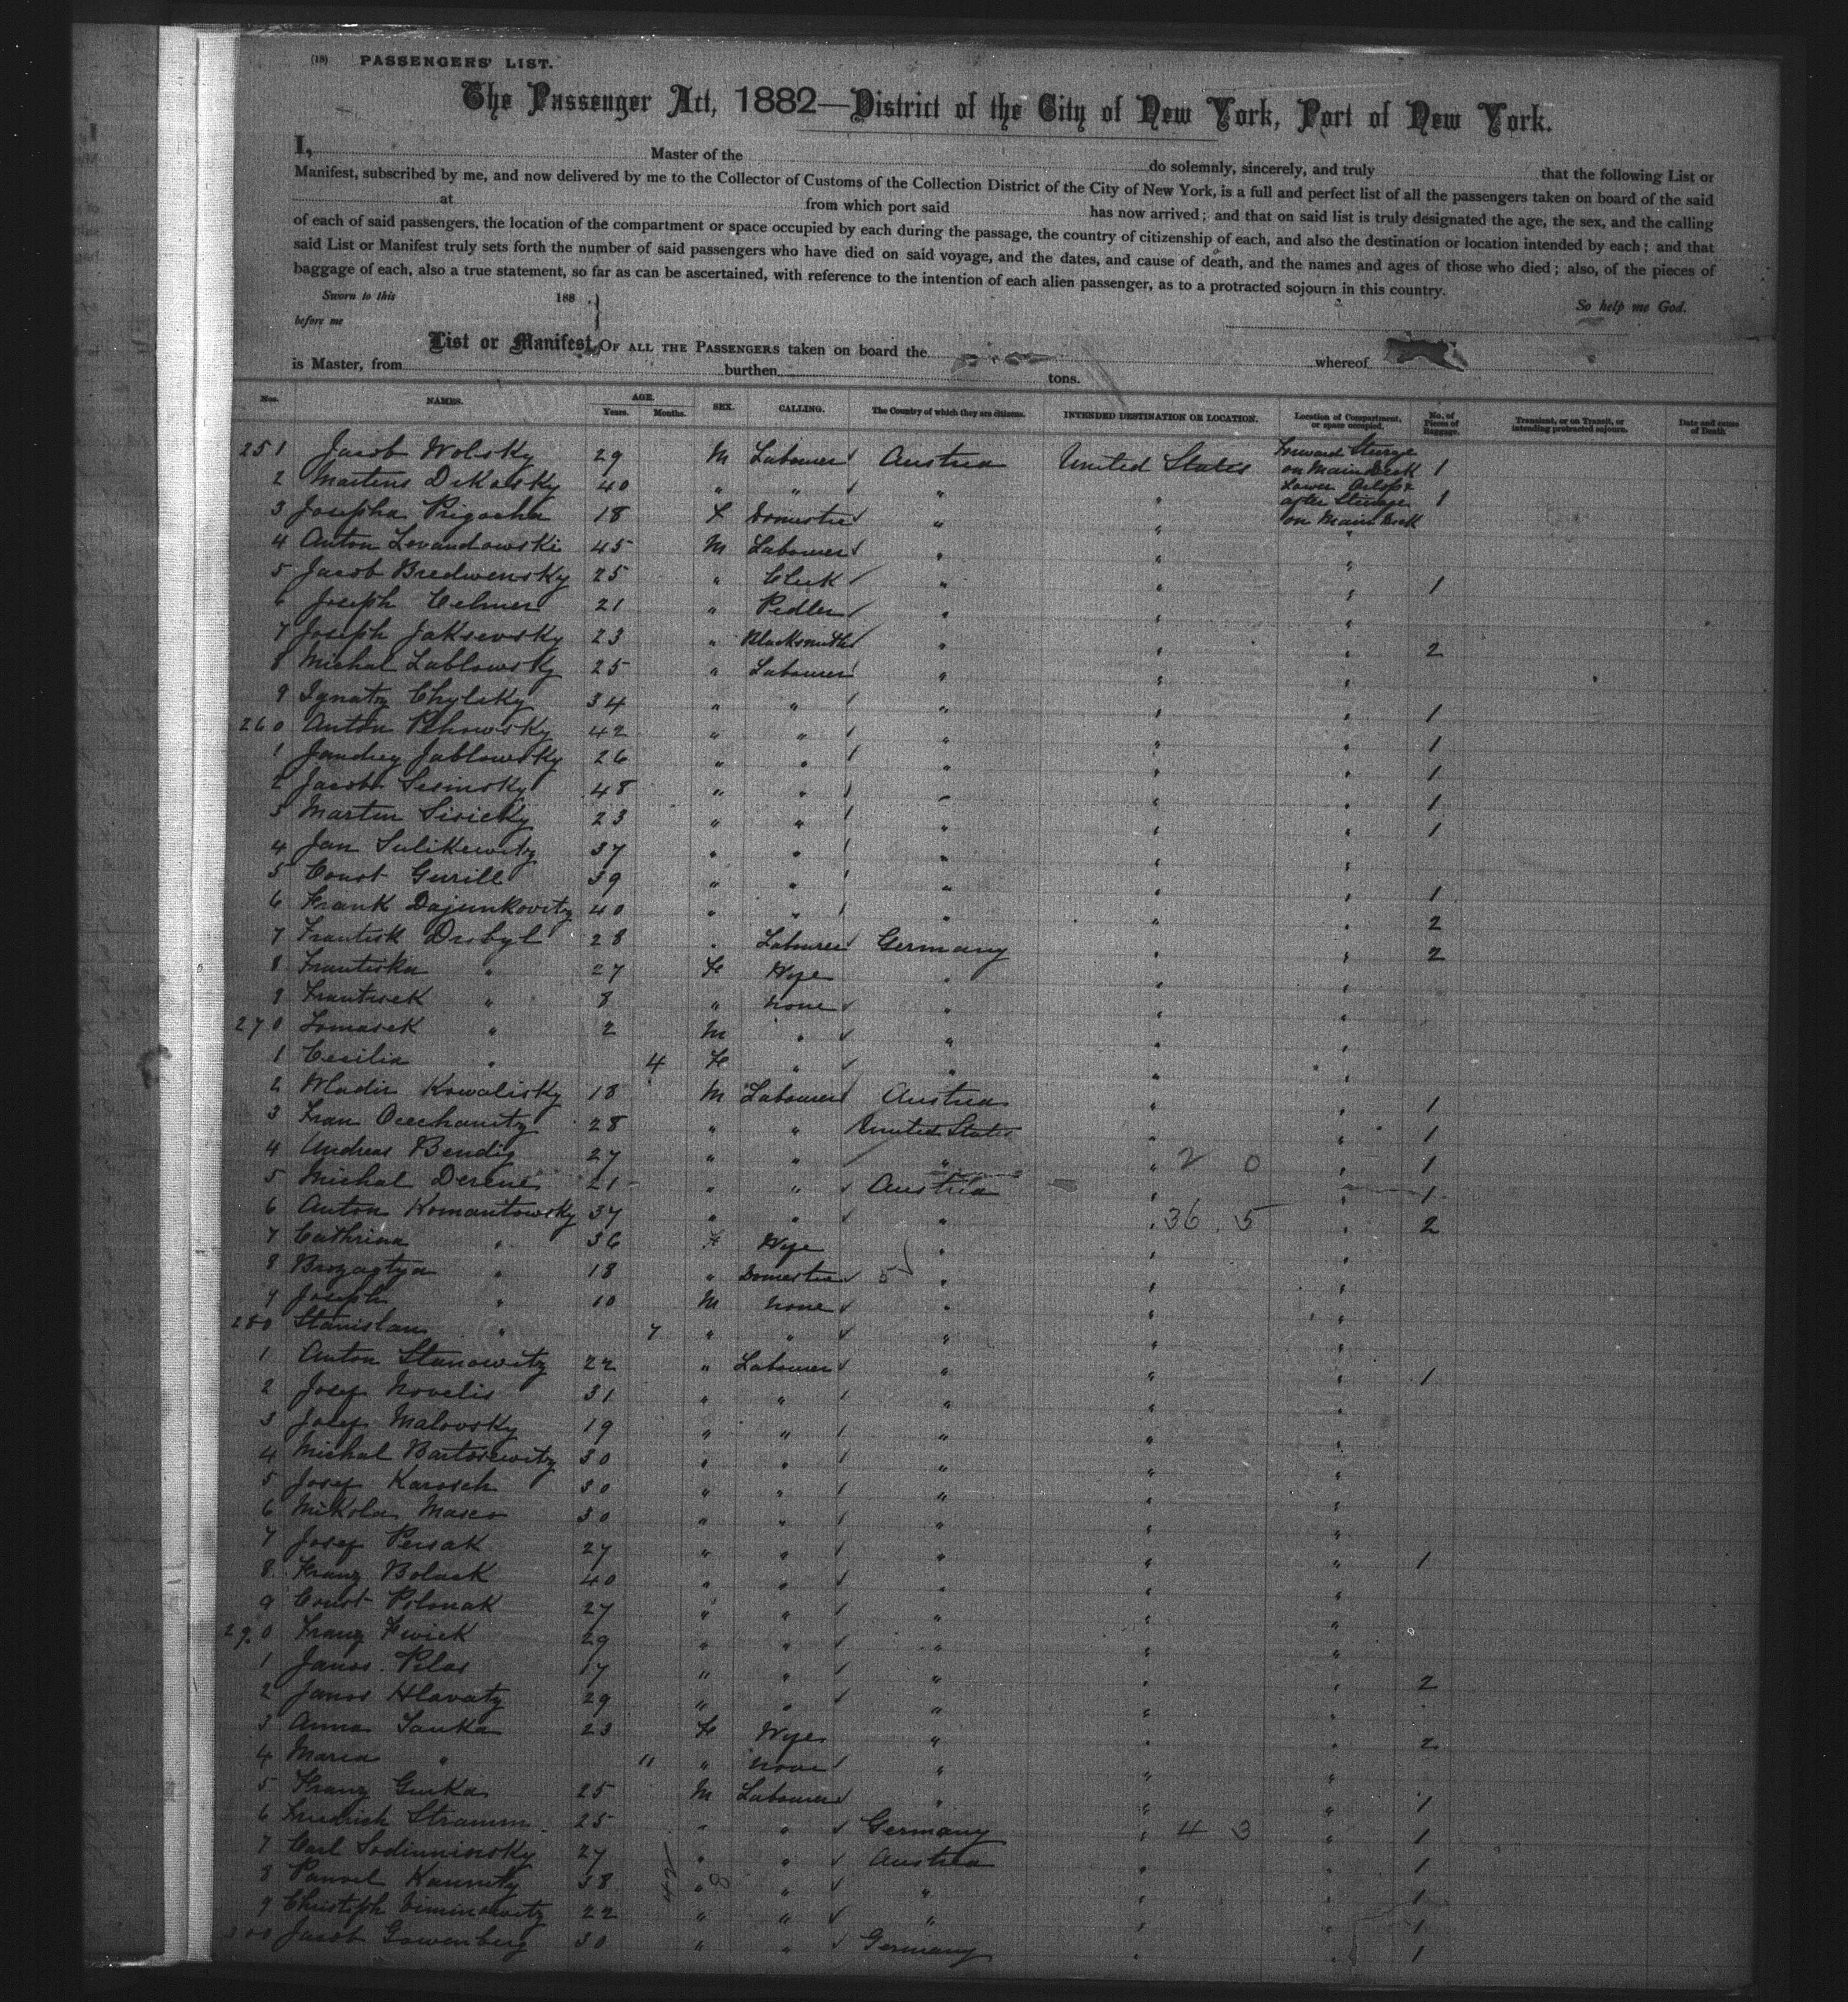 (10) PASSENGERS' LIST.
The Passenger Act, 1882—District of the City of New York, Port of New York.
I, Master of the do solemnly, sincerely, and truly that the following List or
Manifest, subscribed by me, and now delivered by me to the Collector of Customs of the Collection District of the City of New York, is a full and perfect list of all the passengers taken on board of the said
at from which port said has now arrived; and that on said list is truly designated the age, the sex, and the calling
of each of said passengers, the location of the compartment or space occupied by each during the passage, the country of citizenship of each, and also the destination or location intended by each; and that
said List or Manifest truly sets forth the number of said passengers who have died on said voyage, and the dates, and cause of death, and the names and ages of those who died; also, of the pieces of
baggage of each, also a true statement, so far as can be ascertained, with reference to the intention of each alien passenger, as to a protracted sojourn in this country.
Sworn to this 188 . So help me God.
before me
List or Manifest, OF ALL THE PASSENGERS taken on board the whereof
is Master, from burthen tons.
Nos. NAMES. AGE. Years. Months. SEX. CALLING. The Country of which they are citizens. INTENDED DESTINATION OR LOCATION. Location of Compartment, or space occupied. No. of Pieces of Baggage. Transient, or on Transit, or intending protracted sojourn. Date and cause of Death
251 Jacob Wolsky 29 M Labourer Austria United States Forward Steerge on Main Deck 1
2 Martens Dikalsky 40 " " " " Lower Orlop & after Steerage 1
3 Josepha Prigocha 18 F Domestic " " on Main Deck
4 Anton Levandowski 45 M Labourer " " "
5 Jacob Bredwensky 25 " Clerk " " " 1
6 Joseph Celmer 21 " Pedler " " "
7 Joseph Jaksevsky 23 " Blacksmith " " " 2
8 Michal Lablowsky 25 " Labourer " " "
9 Ignatz Chylsky 34 " " " " " 1
260 Anton Pehowsky 42 " " " " " 1
1 Jandrey Jablowsky 26 " " " " " 1
2 Jacob Sesinsky 48 " " " " " 1
3 Martin Sisicky 23 " " " " " 1
4 Jan Sulikewitz 37 " " " " "
5 Const Gerrill 39 " " " " " 1
6 Frank Dajunkovitz 40 " " " " " 2
7 Frantisk Drobyl 28 " Labourer Germany " " 2
8 Frantiska " 27 Fe Wife " " "
9 Frantisek " 8 " None " " "
270 Tomasek " 2 M " " " "
1 Cecilia " 4 Fe " " " "
2 Wladir Kowalisky 18 M Labourer Austria " " 1
3 Fran Ocechanitz 28 " " United States " " 1
4 Andreas Bendig 27 " " " " 2 0 " 1
5 Michal Derene 21 " " Austria " " 1
6 Anton Komantowsky 37 " " " " 36.5 " 2
7 Cathrina " 36 F Wife " " "
8 Brozagtya " 18 " Domestic 5 " " "
9 Joseph " 10 M None " " "
280 Stanislaus " 7 " " " " "
1 Anton Stanowitz 22 " Labourer " " " 1
2 Josef Novelis 31 " " " " "
3 Josef Malovsky 19 " " " " "
4 Michal Bartosewitz 30 " " " " "
5 Josef Karosch 30 " " " " "
6 Mikolas Masco 30 " " " " "
7 Josef Persak 27 " " " " " 1
8 Franz Bolack 40 " " " " "
9 Const Polonak 27 " " " " "
290 Franz Fwick 29 " " " " "
1 Janos Pilar 17 " " " " " 2
2 Janos Hlavaty 29 " " " " "
3 Anna Sauka 23 Fe Wife " " " 2
4 Maria " 11 " None " " "
5 Franz Gurka 25 M Labourer " " " 1
6 Friedrich Stramm 25 " " Germany " 4 3 " 1
7 Carl Sodinninsky 27 " " Austria " " 1
8 Panvel Kannity 38 42 " 8 " " " " 1
9 Christoph Viminowitz 22 " " " " " 1
300 Jacob Gowenberg 30 " " Germany " " 1